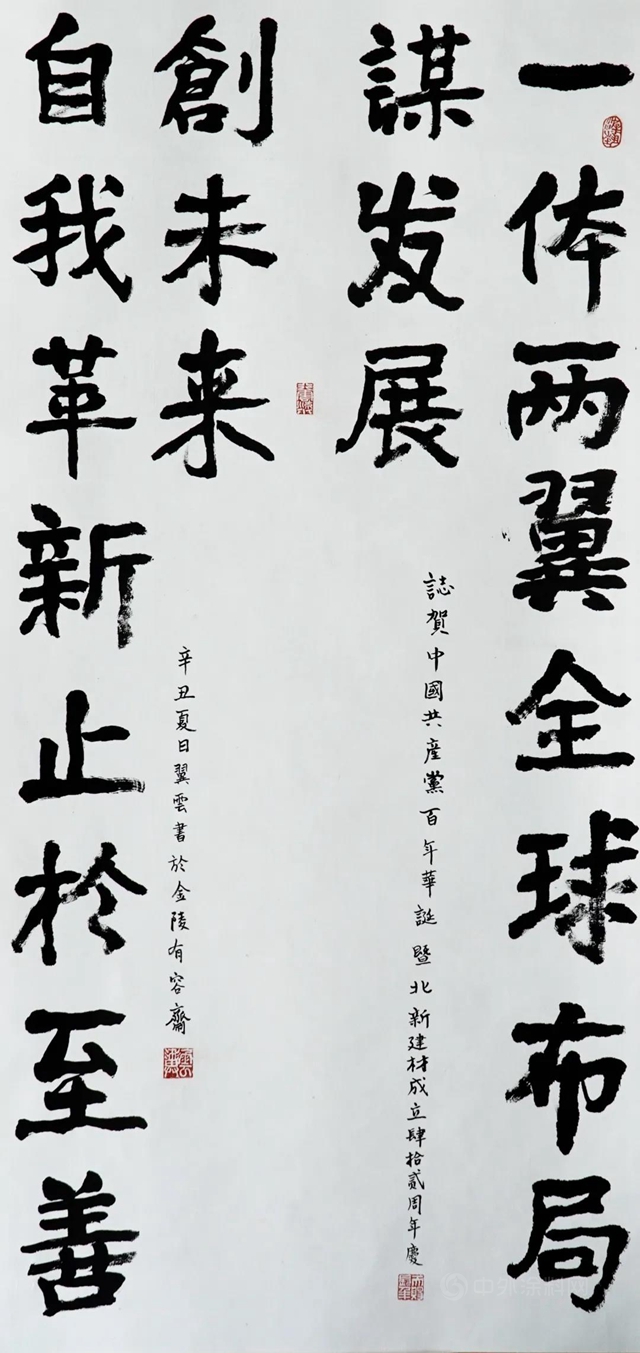 一体两翼全球布局
謀发展
誌賀中國共産黨百年華誕暨北新建材成立肆拾貳周年慶
自我革新止於至善
創未来
辛丑夏日翼雲書於金陵有容齋